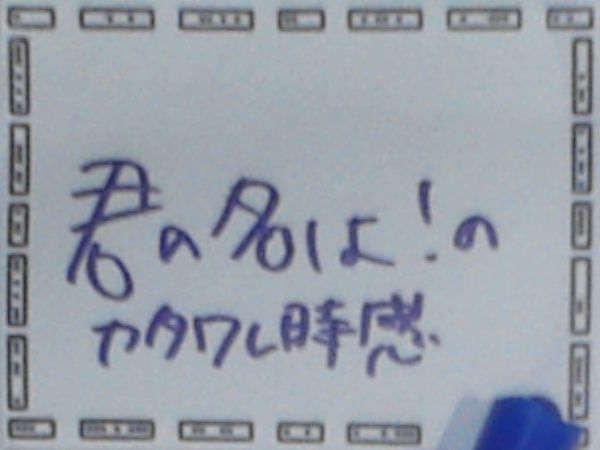 君の名は!の
カタワレ時感